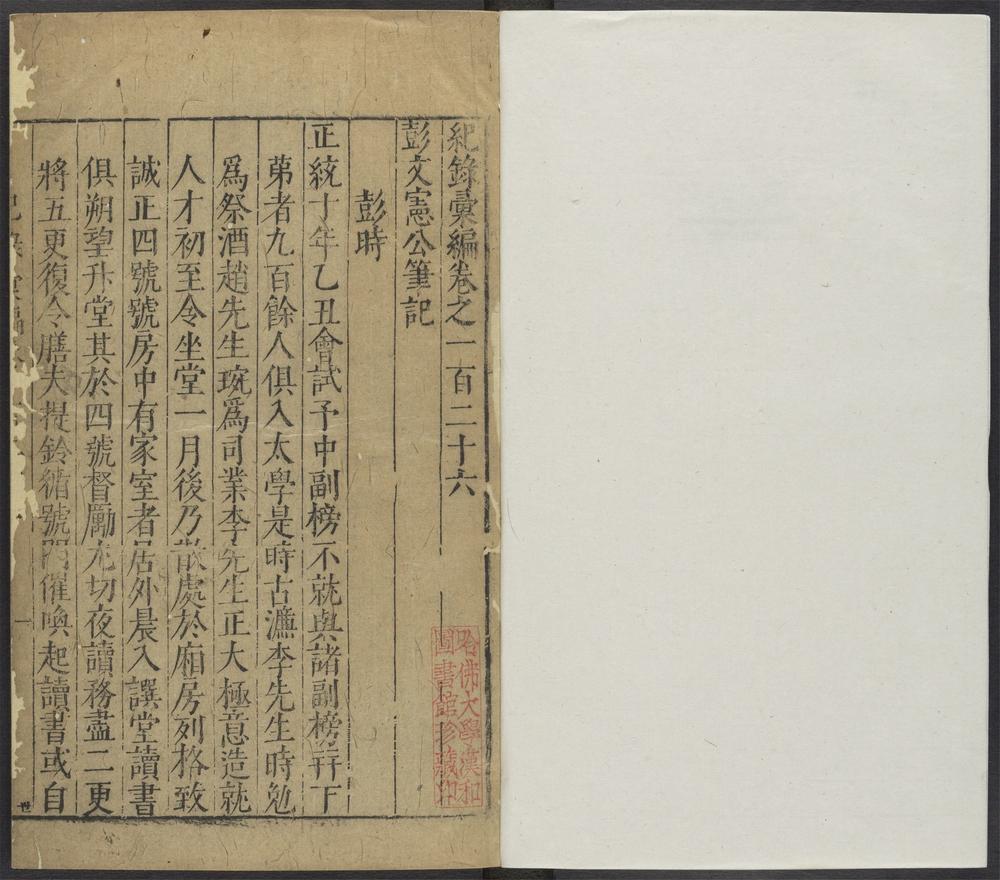 紀錄彙編卷之一百二十六
彭文憲公筆記
彭時
正統十年乙丑會試予中副榜不就與諸副榜并下
第者九百餘人俱入太學是時古㢘李先生時勉
爲祭酒趙先生琬爲司業李先生正大極意造就
人才初至令坐堂一月後乃散處於廂房列格致
誠正四號號房中有家室者居外晨入饌堂讀書
俱朔望升堂其於四號督勵尤切夜讀務盡二更
將五更復令膳夫提鈴循號門催喚起讀書或自
一
世
哈佛大學漢和
圖書館珍藏印